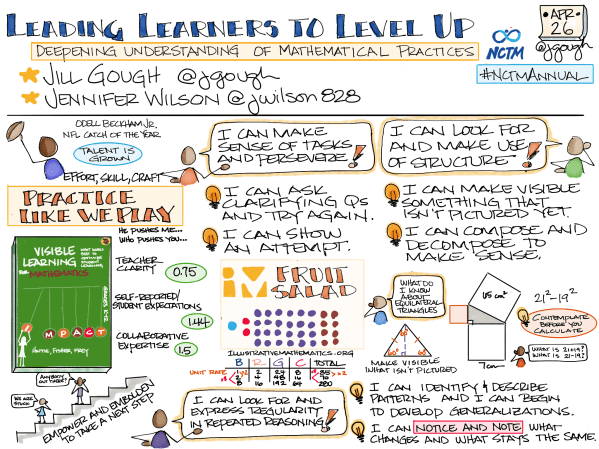 LEADING LEARNERS TO LEVEL UP
DEEPENING UNDERSTANDING OF MATHEMATICAL PRACTICES
JILL GOUGH @jgough
JENNIFER WILSON @jwilson828
NCTM
APR
26
@jgough
#NCTMANNUAL
ODELL BECKHAM JR.
NFL CATCH OF THE YEAR
TALENT IS
GROWN
EFFORT, SKILL, CRAFT
I CAN MAKE
SENSE OF TASKS
AND PERSEVERE!
I CAN LOOK FOR
AND MAKE USE
OF STRUCTURE!
PRACTICE
LIKE WE PLAY
I CAN ASK
CLARIFYING QS
AND TRY AGAIN.
I CAN SHOW
AN ATTEMPT.
I CAN MAKE VISIBLE
SOMETHING THAT
ISN'T PICTURED YET.
I CAN COMPOSE AND
DECOMPOSE TO
MAKE SENSE.
VISIBLE
LEARNING
FOR MATHEMATICS
WHAT WORKS
BEST TO
OPTIMIZE
STUDENT
LEARNING
GRADES K-12
IMPACT
HATTIE, FISHER, FREY
HE PUSHES ME...
WHO PUSHES YOU...
TEACHER
CLARITY
0.75
SELF-REPORTED/
STUDENT EXPECTATIONS
1.44
COLLABORATIVE
EXPERTISE
1.5
IM
FRUIT
SALAD
ILLUSTRATIVEMATHEMATICS.ORG
B R G C TOTAL
UNIT RATE
WHAT DO
I KNOW
ABOUT
EQUILATERAL
TRIANGLES
MAKE VISIBLE
WHAT ISN'T PICTURED
115 cm²
7cm
21²-19²
CONTEMPLATE
BEFORE YOU
CALCULATE
WHAT IS 21+19?
WHAT IS 21-19?
ANYBODY
OUT THERE?
WE ARE
STUCK
EMPOWER AND EMBOLDEN
TO TAKE A NEXT STEP
I CAN LOOK FOR AND
EXPRESS REGULARITY
IN REPEATED REASONING!
I CAN IDENTIFY & DESCRIBE
PATTERNS AND I CAN BEGIN
TO DEVELOP GENERALIZATIONS.
I CAN NOTICE AND NOTE WHAT
CHANGES AND WHAT STAYS THE SAME.